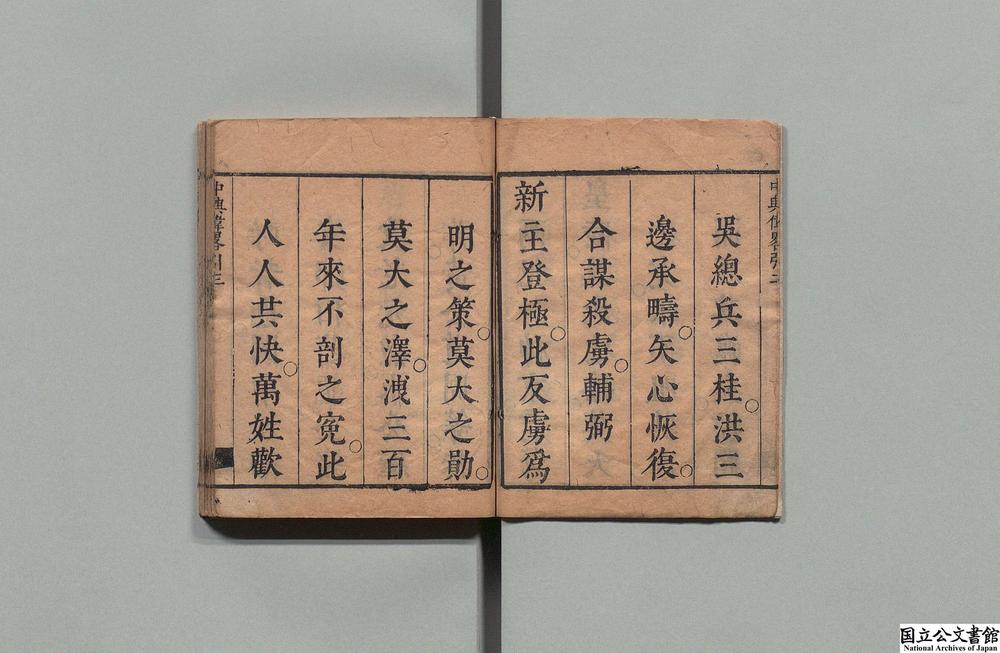 吳總兵三桂○洪三
邊承疇○矢心恢復○
合謀殺虜○輔弼
新主登極○此反虜爲
明之策○莫大之勛○
莫大之澤○洩三百
年來不剖之寃○此
人人共快○萬姓歡
中興偉畧引三
国立公文書館
National Archives of Japan